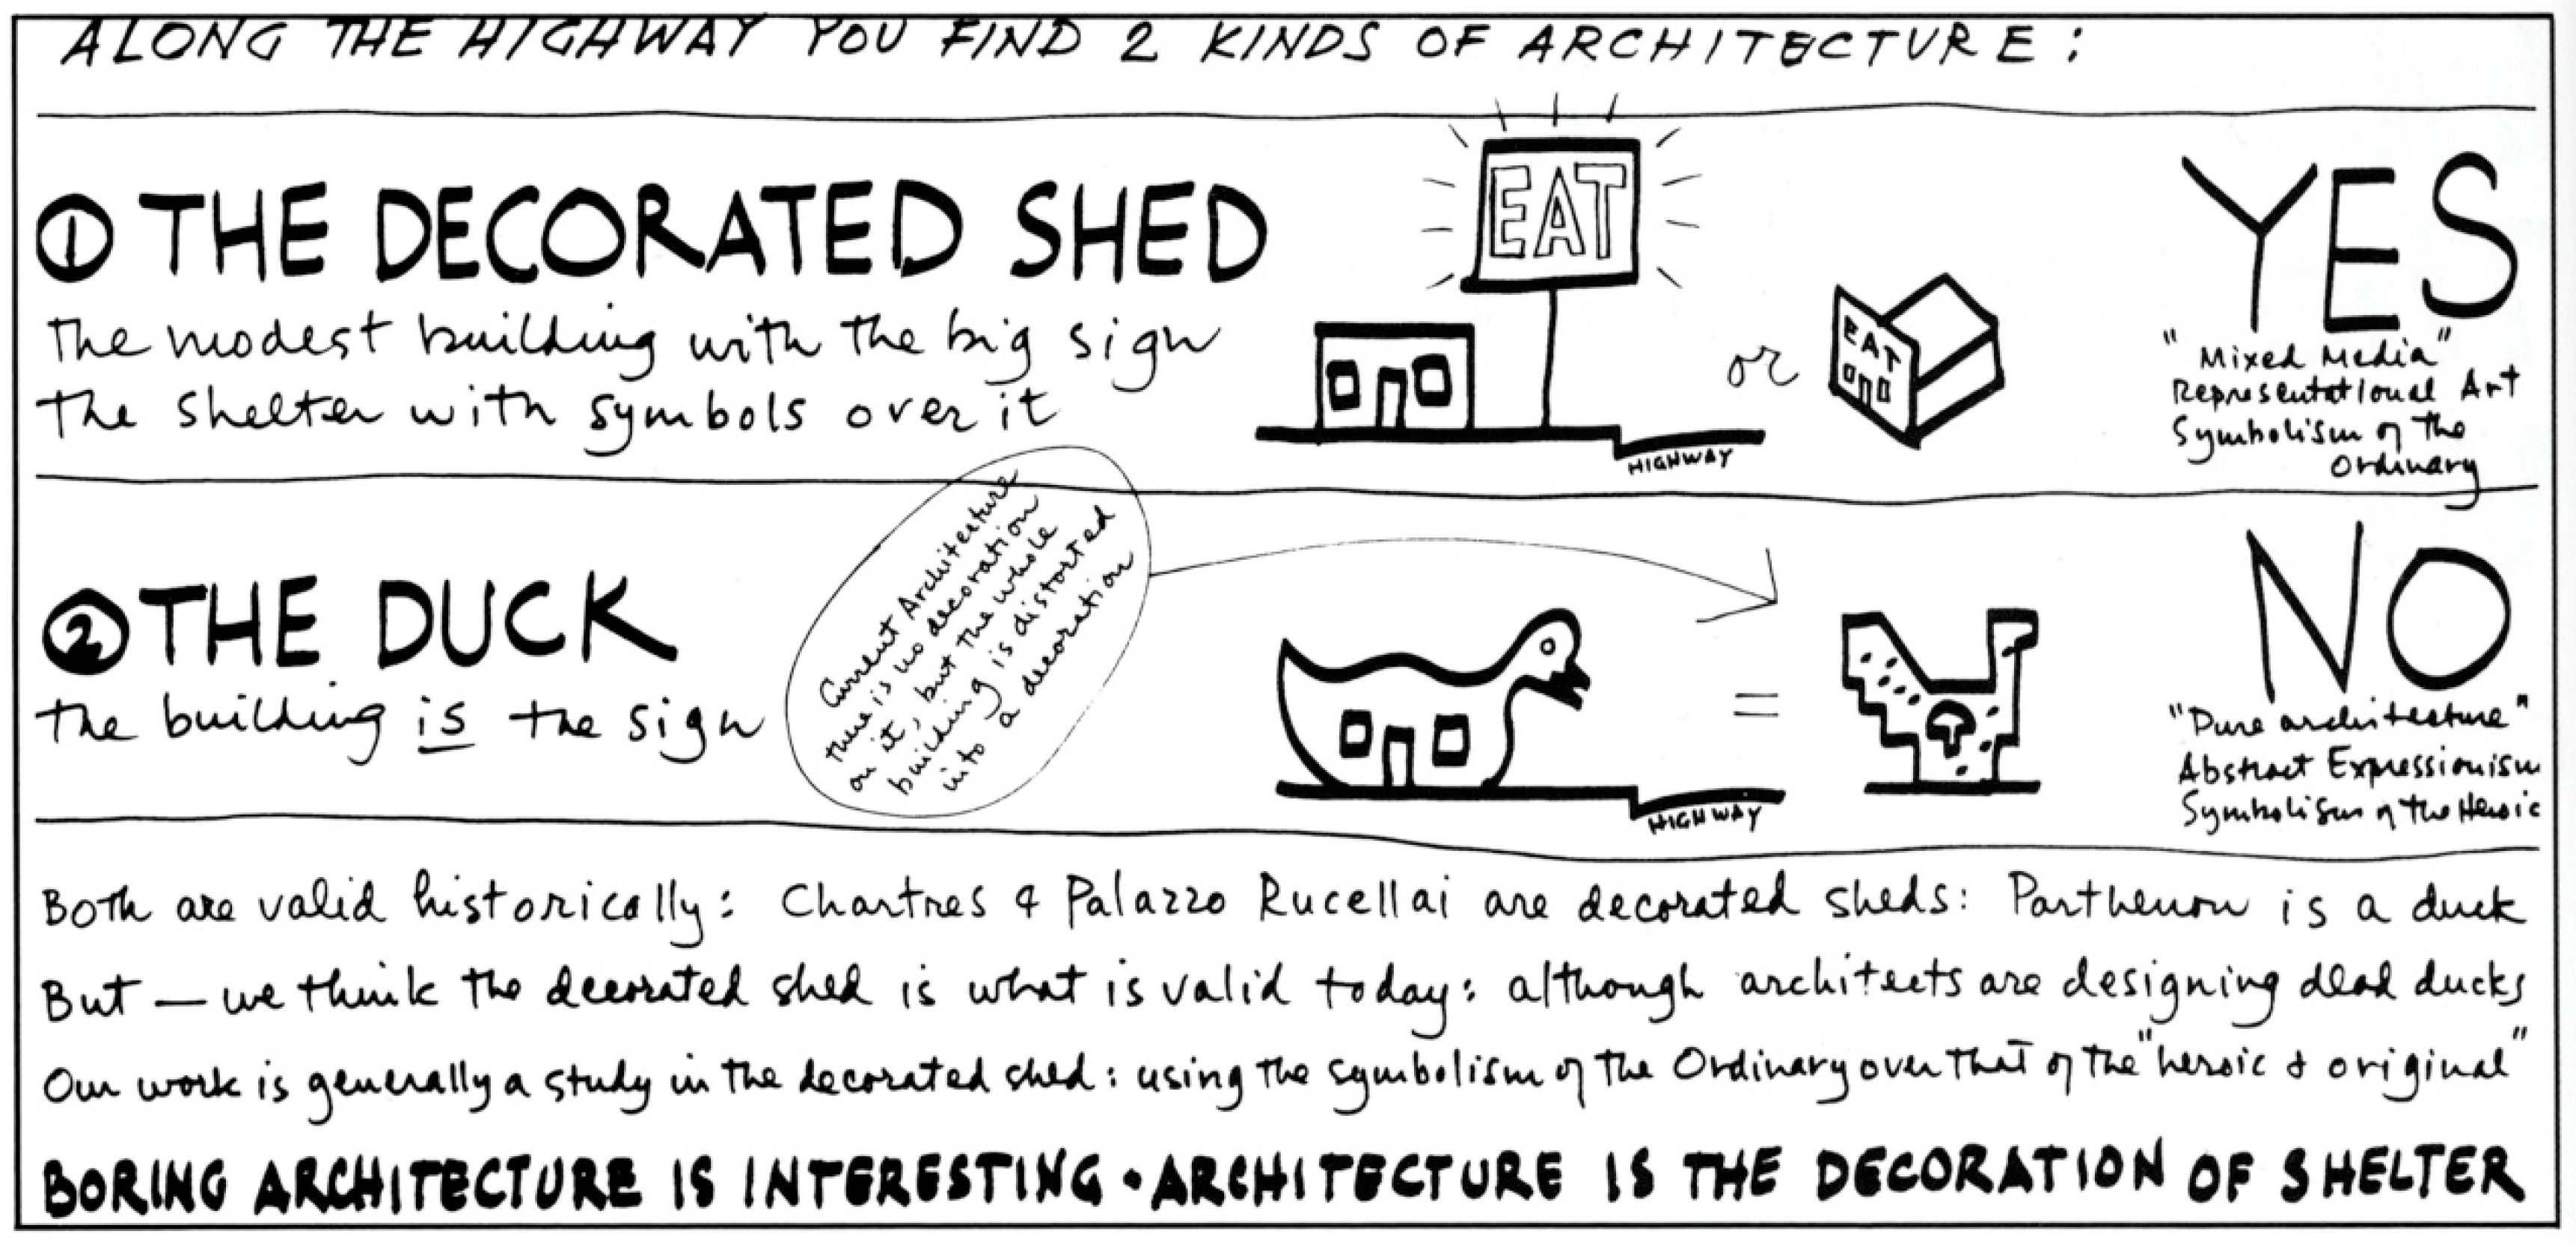 ALONG THE HIGHWAY YOU FIND 2 KINDS OF ARCHITECTURE:
① THE DECORATED SHED
the modest building with the big sign
the shelter with symbols over it
EAT
HIGHWAY
or
EAT
YES
"Mixed Media"
Representational Art
Symbolism of the
Ordinary
② THE DUCK
the building is the sign
Current Architecture
there is no decoration
on it, but the whole
building is distorted
into a decoration
HIGHWAY
=
NO
"Pure architecture"
Abstract Expressionism
Symbolism of the Heroic
Both are valid historically: Chartres & Palazzo Rucellai are decorated sheds: Parthenon is a duck
But — we think the decorated shed is what is valid today: although architects are designing dead ducks
Our work is generally a study in the decorated shed: using the symbolism of the Ordinary over that of the "heroic & original"
BORING ARCHITECTURE IS INTERESTING • ARCHITECTURE IS THE DECORATION OF SHELTER